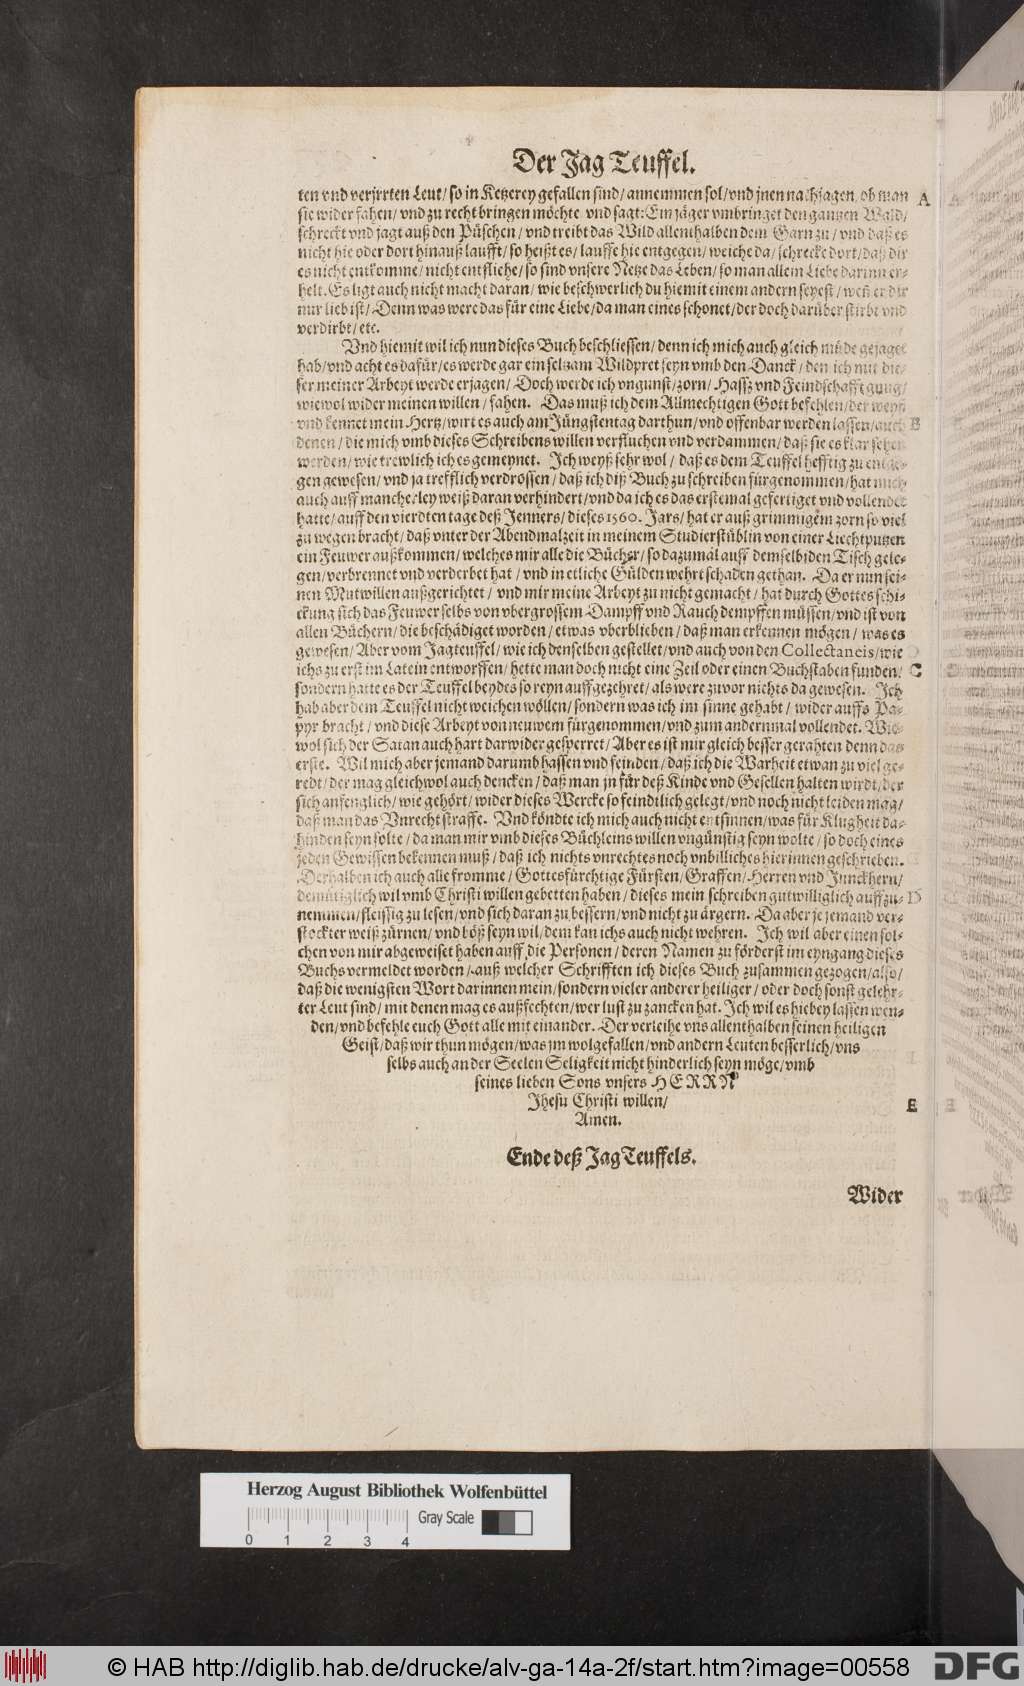 Der Jag Teuffel.
ten vnd verjrrten Leut/ so in Ketzerey gefallen sind/ annemmen sol/ vnd jnen nachjagen, ob man A
sie wider fahen/ vnd zu recht bringen möchte vnd sagt: Ein jäger vmbringet den gantzen Wald/
schreckt vnd jagt auß den Püschen/ vnd treibt das Wild allenthalben dem Garn zu/ vnd daß es
nicht hie oder dort hinauß laufft/ so heißt es/ lauffe hie entgegen/ weiche da/ schrecke dort/ daß dir
es nicht entkomme/ nicht entfliehe/ so sind vnsere Netze das Leben/ so man allein Liebe darinn er-
helt. Es ligt auch nicht macht daran/ wie beschwerlich du hiemit einem andern seyest/ weñ er dir
nur lieb ist/ Denn was were das für eine Liebe/ da man eines schonet/ der doch darüber stirbt vnd
verdirbt/ etc.
Vnd hiemit wil ich nun dieses Buch beschliessen/ denn ich mich auch gleich müde gejaget
hab/ vnd acht es dafür/ es werde gar ein seltzam Wildpret seyn vmb den Danck/ den ich mit die-
ser meiner Arbeyt werde erjagen/ Doch werde ich vngunst/ zorn/ Hassz vnd Feindschafft gnug/
wiewol wider meinen willen/ fahen. Das muß ich dem Allmechtigen Gott befehlen/ der weyß
vnd kennet mein Hertz/ wirt es auch am Jüngstentag darthun/ vnd offenbar werden lassen/ auch B
denen/ die mich vmb dieses Schreibens willen verfluchen vnd verdammen/ daß sie es klar sehen
werden/ wie trewlich ich es gemeynet. Ich weyß sehr wol/ daß es dem Teuffel hefftig zu entge-
gen gewesen/ vnd ja trefflich verdrossen/ daß ich diß Buch zu schreiben fürgenommen/ hat mich
auch auff mancherley weiß daran verhindert/ vnd da ich es das erstemal gefertiget vnd vollendet
hatte/ auff den vierdten tage deß Jenners/ dieses 1560. Jars/ hat er auß grimmigem zorn so viel
zu wegen bracht/ daß vnter der Abendmalzeit in meinem Studierstüblin von einer Liechtputzen
ein Feuwer außkommen/ welches mir alle die Bücher/ so dazumal auff demselbiden Tisch gele-
gen/ verbrennet vnd verderbet hat/ vnd in etliche Gülden wehrt schaden gethan. Da er nun sei-
nen Mutwillen außgerichtet/ vnd mir meine Arbeyt zu nicht gemacht/ hat durch Gottes schi-
ckung sich das Feuwer selbs von vbergrossem Dampff vnd Rauch dempffen müssen/ vnd ist von
allen Büchern/ die beschädiget worden/ etwas vberblieben/ daß man erkennen mögen/ was es
gewesen/ Aber vom Jagteuffel/ wie ich denselben gestellet/ vnd auch von den Collectaneis/ wie
ichs zu erst im Latein entworffen/ hette man doch nicht eine Zeil oder einen Buchstaben funden/ C
sondern hatte es der Teuffel beydes so reyn auffgezehret/ als were zuvor nichts da gewesen. Ich
hab aber dem Teuffel nicht weichen wöllen/ sondern was ich im sinne gehabt/ wider auffs Pa-
pyr bracht/ vnd diese Arbeyt von neuwem fürgenommen/ vnd zum andernmal vollendet. Wie-
wol sich der Satan auch hart darwider gesperret/ Aber es ist mir gleich besser gerahten denn das
erste. Wil mich aber jemand darumb hassen vnd feinden/ daß ich die Warheit etwan zu viel ge-
redt/ der mag gleichwol auch dencken/ daß man jn für deß Kinde vnd Gesellen halten wirdt/ der
sich anfenglich/ wie gehört/ wider dieses Wercke so feindtlich gelegt/ vnd noch nicht leiden mag/
daß man das Vnrecht straffe. Vnd köndte ich mich auch nicht entsinnen/ was für Klugheit da-
hinden seyn solte/ da man mir vmb dieses Büchleins willen vngünstig seyn wolte/ so doch eines
jeden Gewissen bekennen muß/ daß ich nichts vnrechtes noch vnbilliches hierinnen geschrieben.
Derhalben ich auch alle fromme/ Gottesfürchtige Fürsten/ Graffen/ Herren vnd Junckhern/
demütiglich wil vmb Christi willen gebetten haben/ dieses mein schreiben gutwilliglich auffzu- D
nemmen/ fleissig zu lesen/ vnd sich daran zu bessern/ vnd nicht zu ärgern. Da aber je jemand ver-
stockter weiß zürnen/ vnd löß seyn wil/ dem kan ichs auch nicht wehren. Ich wil aber einen sol-
chen von mir abgeweiset haben auff die Personen/ deren Namen zu förderst im eyngang dieses
Buchs vermeldet worden/ auß welcher Schrifften ich dieses Buch zusammen gezogen/ also/
daß die wenigsten Wort darinnen mein/ sondern vieler anderer heiliger/ oder doch sonst gelehr-
ter Leut sind/ mit denen mag es außfechten/ wer lust zu zancken hat. Ich wil es hiebey lassen wen-
den/ vnd befehle euch Gott alle mit einander. Der verleihe vns allenthalben seinen heiligen
Geist/ daß wir thun mögen/ was jm wolgefallen/ vnd andern Leuten besserlich/ vns
selbs auch an der Seelen Seligkeit nicht hinderlich seyn möge/ vmb
seines lieben Sons vnsers HERRN
Jhesu Christi willen/ E
Amen.
Ende deß Jag Teuffels.
Wider
Herzog August Bibliothek Wolfenbüttel
Gray Scale
0 1 2 3 4
© HAB http://diglib.hab.de/drucke/alv-ga-14a-2f/start.htm?image=00558
DFG